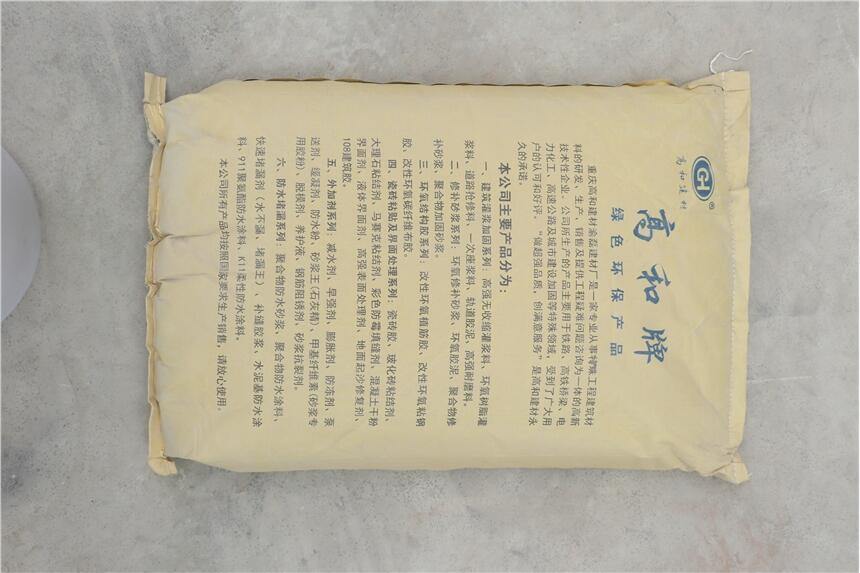 GH®
高和建材
高和牌
绿色环保产品
重庆高和建材渝磊建材厂是一家专业从事特殊工程建筑材
料的研发、生产、销售及提供工程疑难问题咨询为一体的高新
技术性企业。公司所生产的产品主要用于铁路、高铁桥梁、电
力化工、高速公路及城市建设加固等特殊领域，受到了广大用
户的认可和好评，“做超强品质，创满意服务”是高和建材永
久的承诺。
本公司主要产品分为：
一、建筑灌浆加固系列：高强无收缩灌浆料、环氧树脂灌
浆料、道路抢修料、一次座浆料、轨道胶泥、高强耐磨料。
二、修补砂浆系列：环氧修补砂浆、环氧胶泥、聚合物修
补砂浆、聚合物加固砂浆。
三、环氧结构胶系列：改性环氧植筋胶、改性环氧粘钢
胶、改性环氧碳纤维布胶。
四、瓷砖粘贴及界面处理系列：瓷砖胶、玻化砖粘结剂、
大理石粘结剂、马赛克粘结剂、彩色防霉填缝剂、混凝土干粉
界面剂、液体界面剂、高强表面处理剂、地面起沙修复剂、
108建筑胶。
五、外加剂系列：减水剂、早强剂、膨胀剂、防冻剂、泵
送剂、缓凝剂、防水粉、砂浆王(石灰精)、甲基纤维素(砂浆专
用胶粉)、脱模剂、养护液、钢筋阻锈剂、砂浆抗裂剂。
六、防水堵漏系列：聚合物防水砂浆、聚合物防水涂料、
快速堵漏剂（水不漏、堵漏王）、补缝胶浆、水泥基防水涂
料、911聚氨酯防水涂料、K11柔性防水涂料。
本公司所有产品均按照国家要求生产销售，请放心使用。